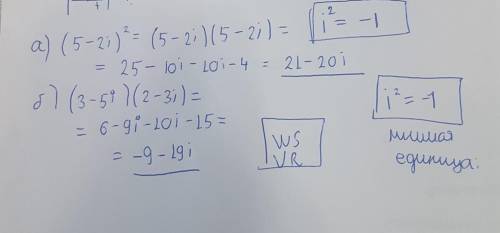 а) (5-2i)² = (5-2i)(5-2i) = i² = -1
= 25-10i-10i-4 = 21-20i
б) (3-5i)(2-3i) = i² = -1
= 6-9i-10i-15 =
= -9-19i
WS
VR
мнимая
единица.